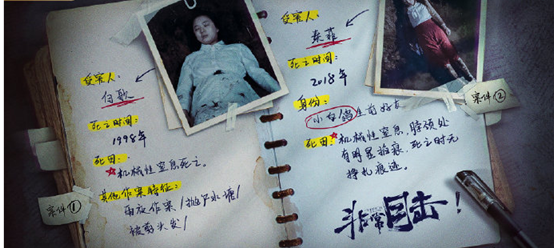 受害人:
白歌
死亡时间:
1998年
死因:
机械性窒息死亡。
其他作案特征:
雨夜作案/抛尸水塘/
被剪头发/
案件①
受害人:
秦菲
死亡时间:
2018年
身份:
小白鸽生前好友
死因:
机械性窒息,脖颈处
有明显掐痕,死亡时无
挣扎痕迹。
案件②
非常目击!